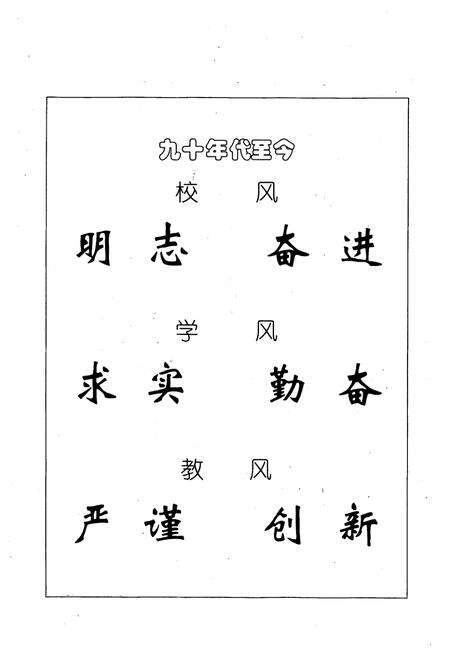 九十年代至今
校 风
明志 奋进
学 风
求实 勤奋
教 风
严谨 创新